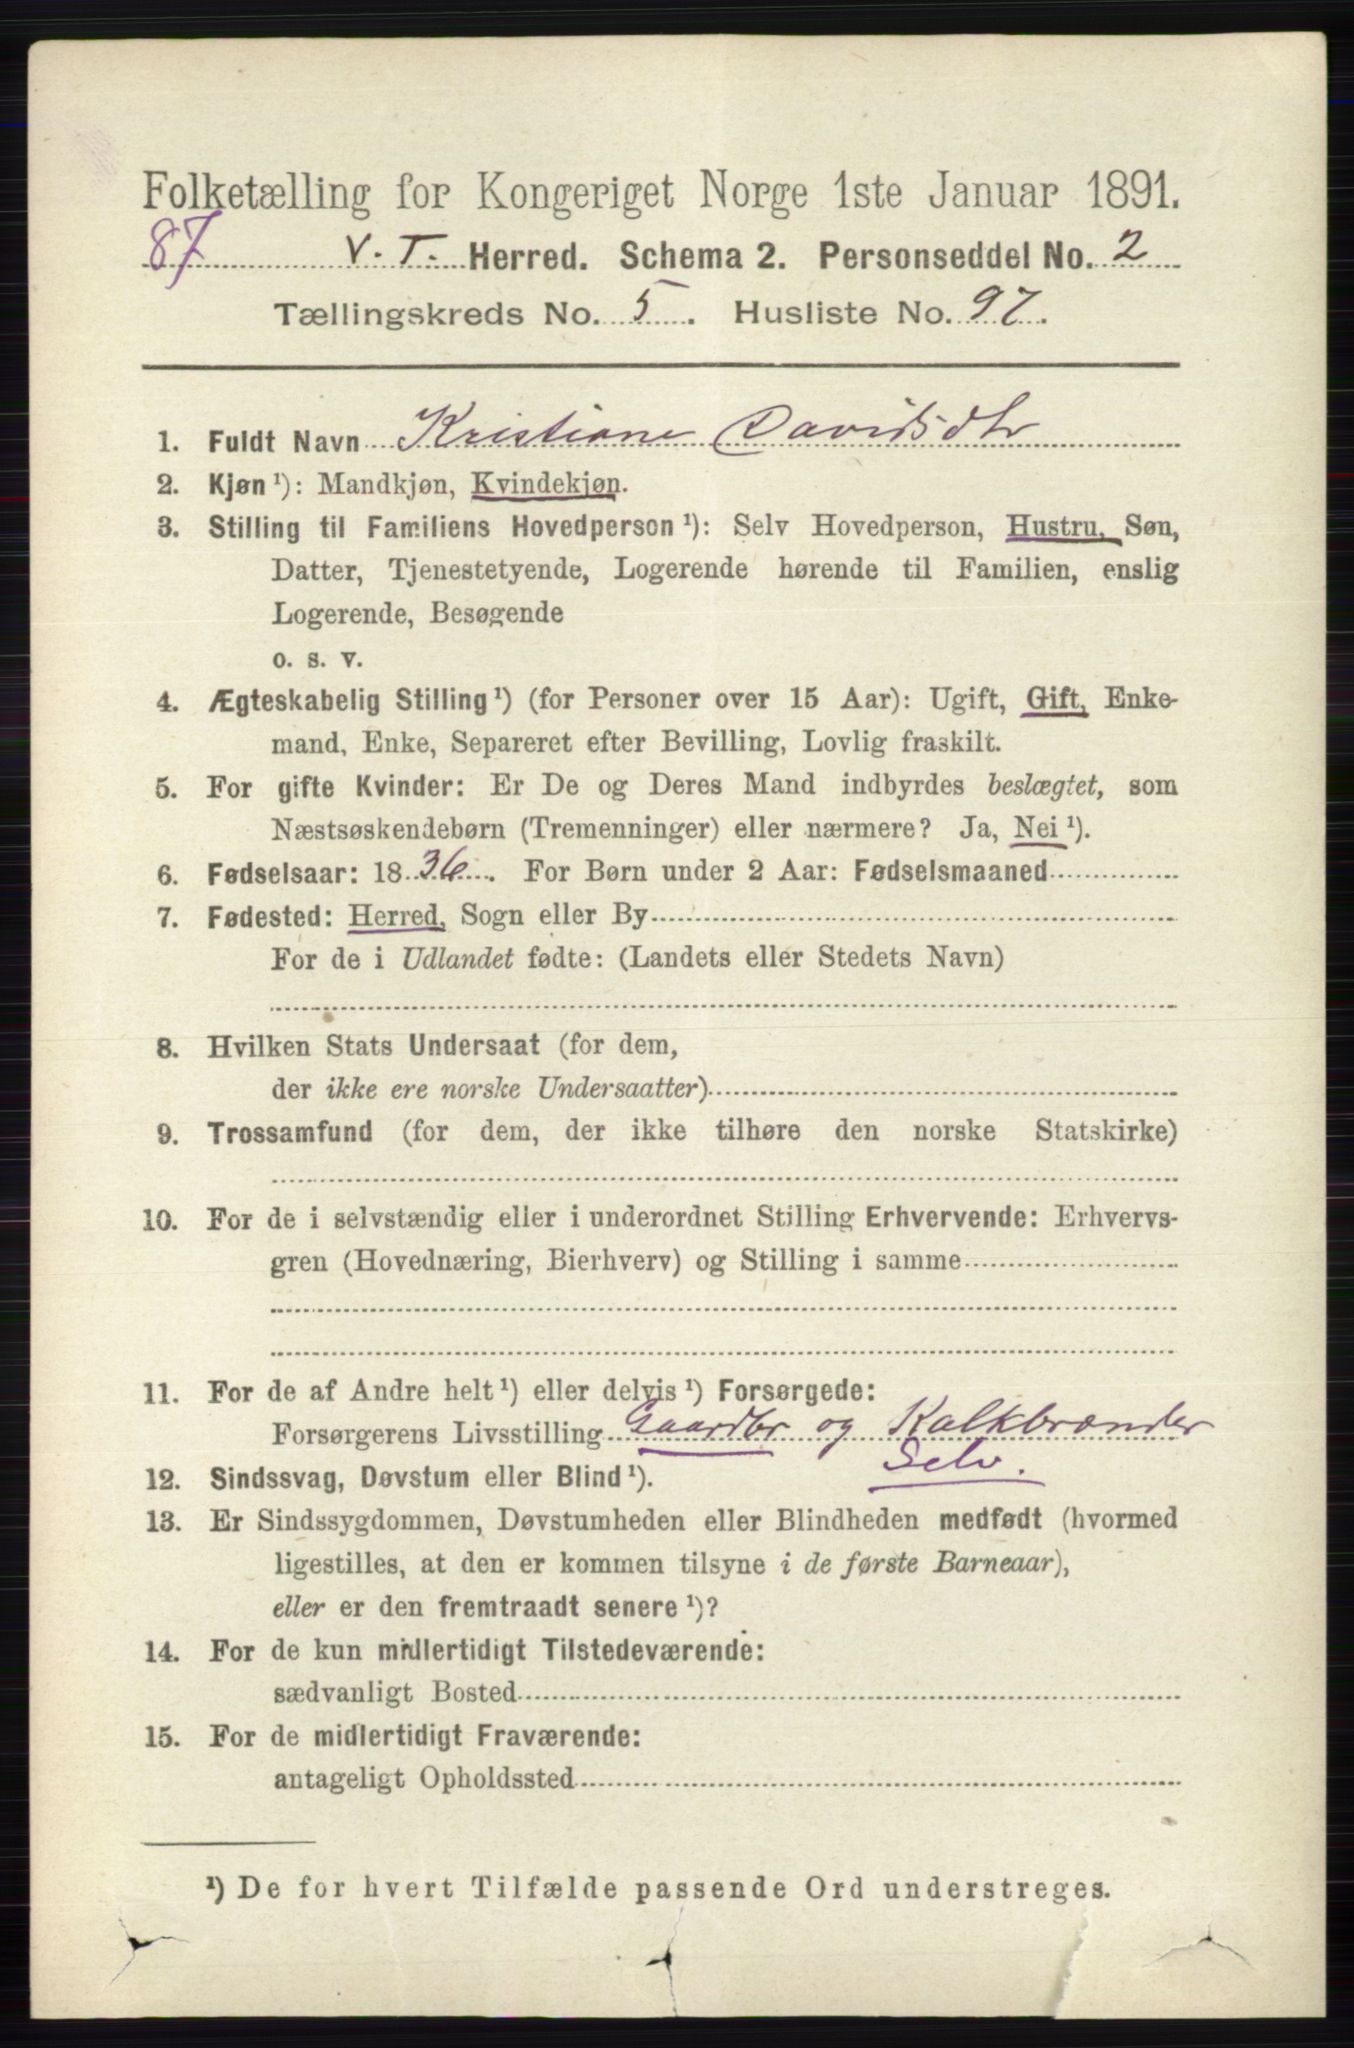 Folketælling for Kongeriget Norge 1ste Januar 1891.
87 V. T. Herred. Schema 2. Personseddel No. 2
Tællingskreds No. 5. Husliste No. 97.
1. Fuldt Navn Kristiane Davidsdtr
2. Kjøn ¹): Mandkjøn, Kvindekjøn.
3. Stilling til Familiens Hovedperson ¹): Selv Hovedperson, Hustru, Søn,
Datter, Tjenestetyende, Logerende hørende til Familien, enslig
Logerende, Besøgende
o. s. v.
4. Ægteskabelig Stilling ¹) (for Personer over 15 Aar): Ugift, Gift, Enke-
mand, Enke, Separeret efter Bevilling, Lovlig fraskilt.
5. For gifte Kvinder: Er De og Deres Mand indbyrdes beslægtet, som
Næstsøskendebørn (Tremenninger) eller nærmere? Ja, Nei ¹).
6. Fødselsaar: 1836. For Børn under 2 Aar: Fødselsmaaned
7. Fødested: Herred, Sogn eller By
For de i Udlandet fødte: (Landets eller Stedets Navn)
8. Hvilken Stats Undersaat (for dem,
der ikke ere norske Undersaatter)
9. Trossamfund (for dem, der ikke tilhøre den norske Statskirke)
10. For de i selvstændig eller i underordnet Stilling Erhvervende: Erhvervs-
gren (Hovednæring, Bierhverv) og Stilling i samme
11. For de af Andre helt ¹) eller delvis ¹) Forsørgede:
Forsørgerens Livsstilling Gaardbr og Kalkbrænder
Selv.
12. Sindssvag, Døvstum eller Blind ¹).
13. Er Sindssygdommen, Døvstumheden eller Blindheden medfødt (hvormed
ligestilles, at den er kommen tilsyne i de første Barneaar),
eller er den fremtraadt senere ¹)?
14. For de kun midlertidigt Tilstedeværende:
sædvanligt Bosted
15. For de midlertidigt Fraværende:
antageligt Opholdssted
¹) De for hvert Tilfælde passende Ord understreges.